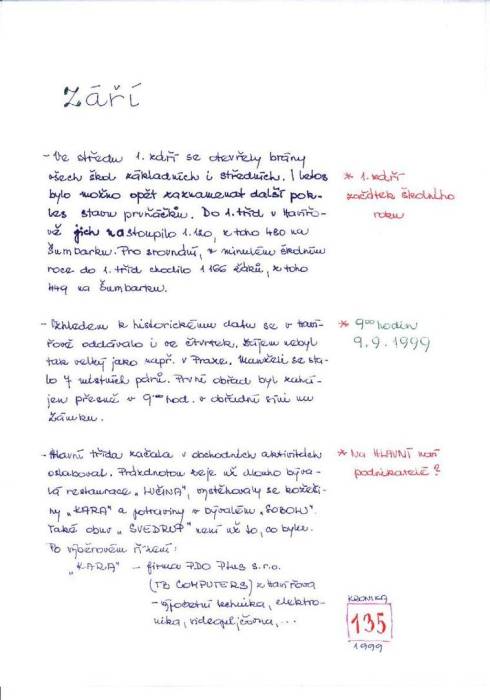 Září
- Ve středu 1. září se otevřely brány
všech škol základních i středních. I letos
bylo možno opět zaznamenat další pok-
les stavu prvňáčků. Do 1. tříd v Havířo-
vě jich nastoupilo 1.120, z toho 480 na
Šumbarku. Pro srovnání, v minulém školním
roce do 1. tříd chodilo 1 166 žáků, z toho
449 na Šumbarku.
* 1. září
začátek školního
roku
- Vzhledem k historickému datu se v Haví-
řově oddávalo i ve čtvrtek. Zájem nebyl
tak velký jako např. v Praze. Manželi se sta-
lo 7 místních párů. První obřad byl zahá-
jen přesně v 9 00 hod. v obřadní síni na
Zámku.
* 9 00 hodin
9. 9. 1999
- Hlavní třída začala v obchodních aktivitách
oslabovat. Prázdnotou zeje už dlouho býva-
lá restaurace „LUČINA", vystěhovaly se kožeši-
ny „KARA" a potraviny v bývalém „SOBOLU".
Také obuv „SVEDRUP" není už to, co byla.
Po výběrovém řízení:
„KARA" - firma PDO Plus s.r.o.
(TB COMPUTERS) z Havířova
- výpočetní technika, elektro-
nika, videopůjčovna, ...
* Na HLAVNÍ noví
podnikatelé?
KRONIKA
135
1999